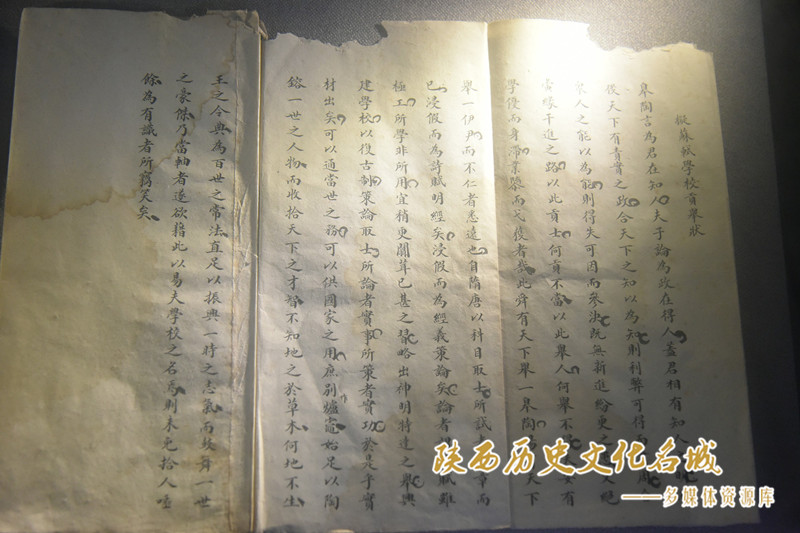 擬蘇軾學校貢舉狀
皋陶言為君在知人夫子論為政在得人蓋君相有知人
後天下有責實之政合天下之知以為知則利弊可得
眾人之能以為能則得失可因而參決既無新進紛更之 絕
夤緣干進之路以此貢士何貢不當以此舉人何舉不 有
學優而身滯業舉而 獲者 此舜有天下舉一皋陶 天下
舉一伊尹而不仁者悉遠也自隋唐以科目取士所試 章而
已浸假而為詩賦明經矣浸假而為經義策論矣論者 賦雖
極工所學非所用宜稍更闒茸已甚之習略出神明特達之舉興
建學校以復古制策論取士所論者實事所策者實功於是乎實
材出矣可以通當世之務可以供國家之用庶別爐 始足以陶
鎔一世之人物而收拾天下之才智不知地之於草木何地不生
王之令典為百世之常法直足以振興一時之志氣而鼓舞一世
之豪傑乃當軸者遂欲藉此以易夫學校之名焉則未免拾人唾
餘為有識者所竊笑矣
陕西历史文化名城
——多媒体资源库